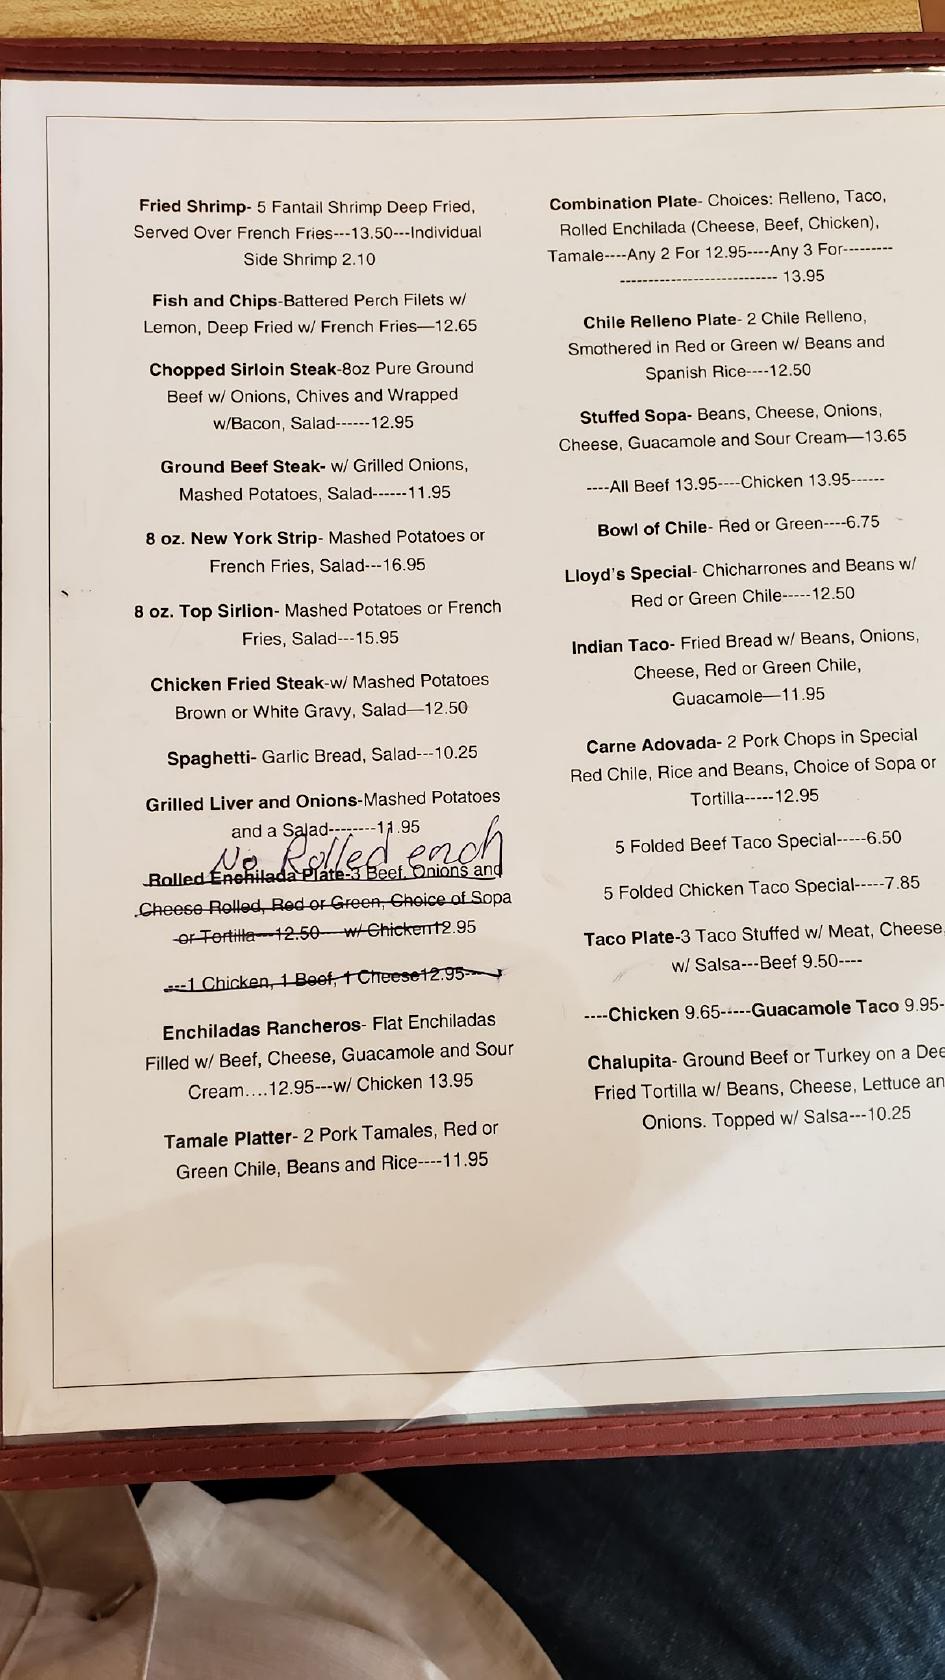 Fried Shrimp- 5 Fantail Shrimp Deep Fried,
Served Over French Fries---13.50---Individual
Side Shrimp 2.10
Fish and Chips-Battered Perch Filets w/
Lemon, Deep Fried w/ French Fries—12.65
Chopped Sirloin Steak-8oz Pure Ground
Beef w/ Onions, Chives and Wrapped
w/Bacon, Salad------12.95
Ground Beef Steak- w/ Grilled Onions,
Mashed Potatoes, Salad------11.95
8 oz. New York Strip- Mashed Potatoes or
French Fries, Salad---16.95
8 oz. Top Sirlion- Mashed Potatoes or French
Fries, Salad---15.95
Chicken Fried Steak-w/ Mashed Potatoes
Brown or White Gravy, Salad—12.50
Spaghetti- Garlic Bread, Salad---10.25
Grilled Liver and Onions-Mashed Potatoes
and a Salad--------11.95
No Rolled ench
Rolled Enchilada Plate-3 Beef, Onions and
Cheese Rolled, Red or Green, Choice of Sopa
or Tortilla---12.50----w/ Chicken12.95
---1 Chicken, 1 Beef, 1 Cheese12.95---
Enchiladas Rancheros- Flat Enchiladas
Filled w/ Beef, Cheese, Guacamole and Sour
Cream....12.95---w/ Chicken 13.95
Tamale Platter- 2 Pork Tamales, Red or
Green Chile, Beans and Rice----11.95
Combination Plate- Choices: Relleno, Taco,
Rolled Enchilada (Cheese, Beef, Chicken),
Tamale----Any 2 For 12.95----Any 3 For---------
---------------------------- 13.95
Chile Relleno Plate- 2 Chile Relleno,
Smothered in Red or Green w/ Beans and
Spanish Rice----12.50
Stuffed Sopa- Beans, Cheese, Onions,
Cheese, Guacamole and Sour Cream—13.65
----All Beef 13.95----Chicken 13.95------
Bowl of Chile- Red or Green----6.75
Lloyd's Special- Chicharrones and Beans w/
Red or Green Chile-----12.50
Indian Taco- Fried Bread w/ Beans, Onions,
Cheese, Red or Green Chile,
Guacamole—11.95
Carne Adovada- 2 Pork Chops in Special
Red Chile, Rice and Beans, Choice of Sopa or
Tortilla-----12.95
5 Folded Beef Taco Special-----6.50
5 Folded Chicken Taco Special-----7.85
Taco Plate-3 Taco Stuffed w/ Meat, Cheese,
w/ Salsa---Beef 9.50----
----Chicken 9.65-----Guacamole Taco 9.95-
Chalupita- Ground Beef or Turkey on a Dee
Fried Tortilla w/ Beans, Cheese, Lettuce an
Onions. Topped w/ Salsa---10.25